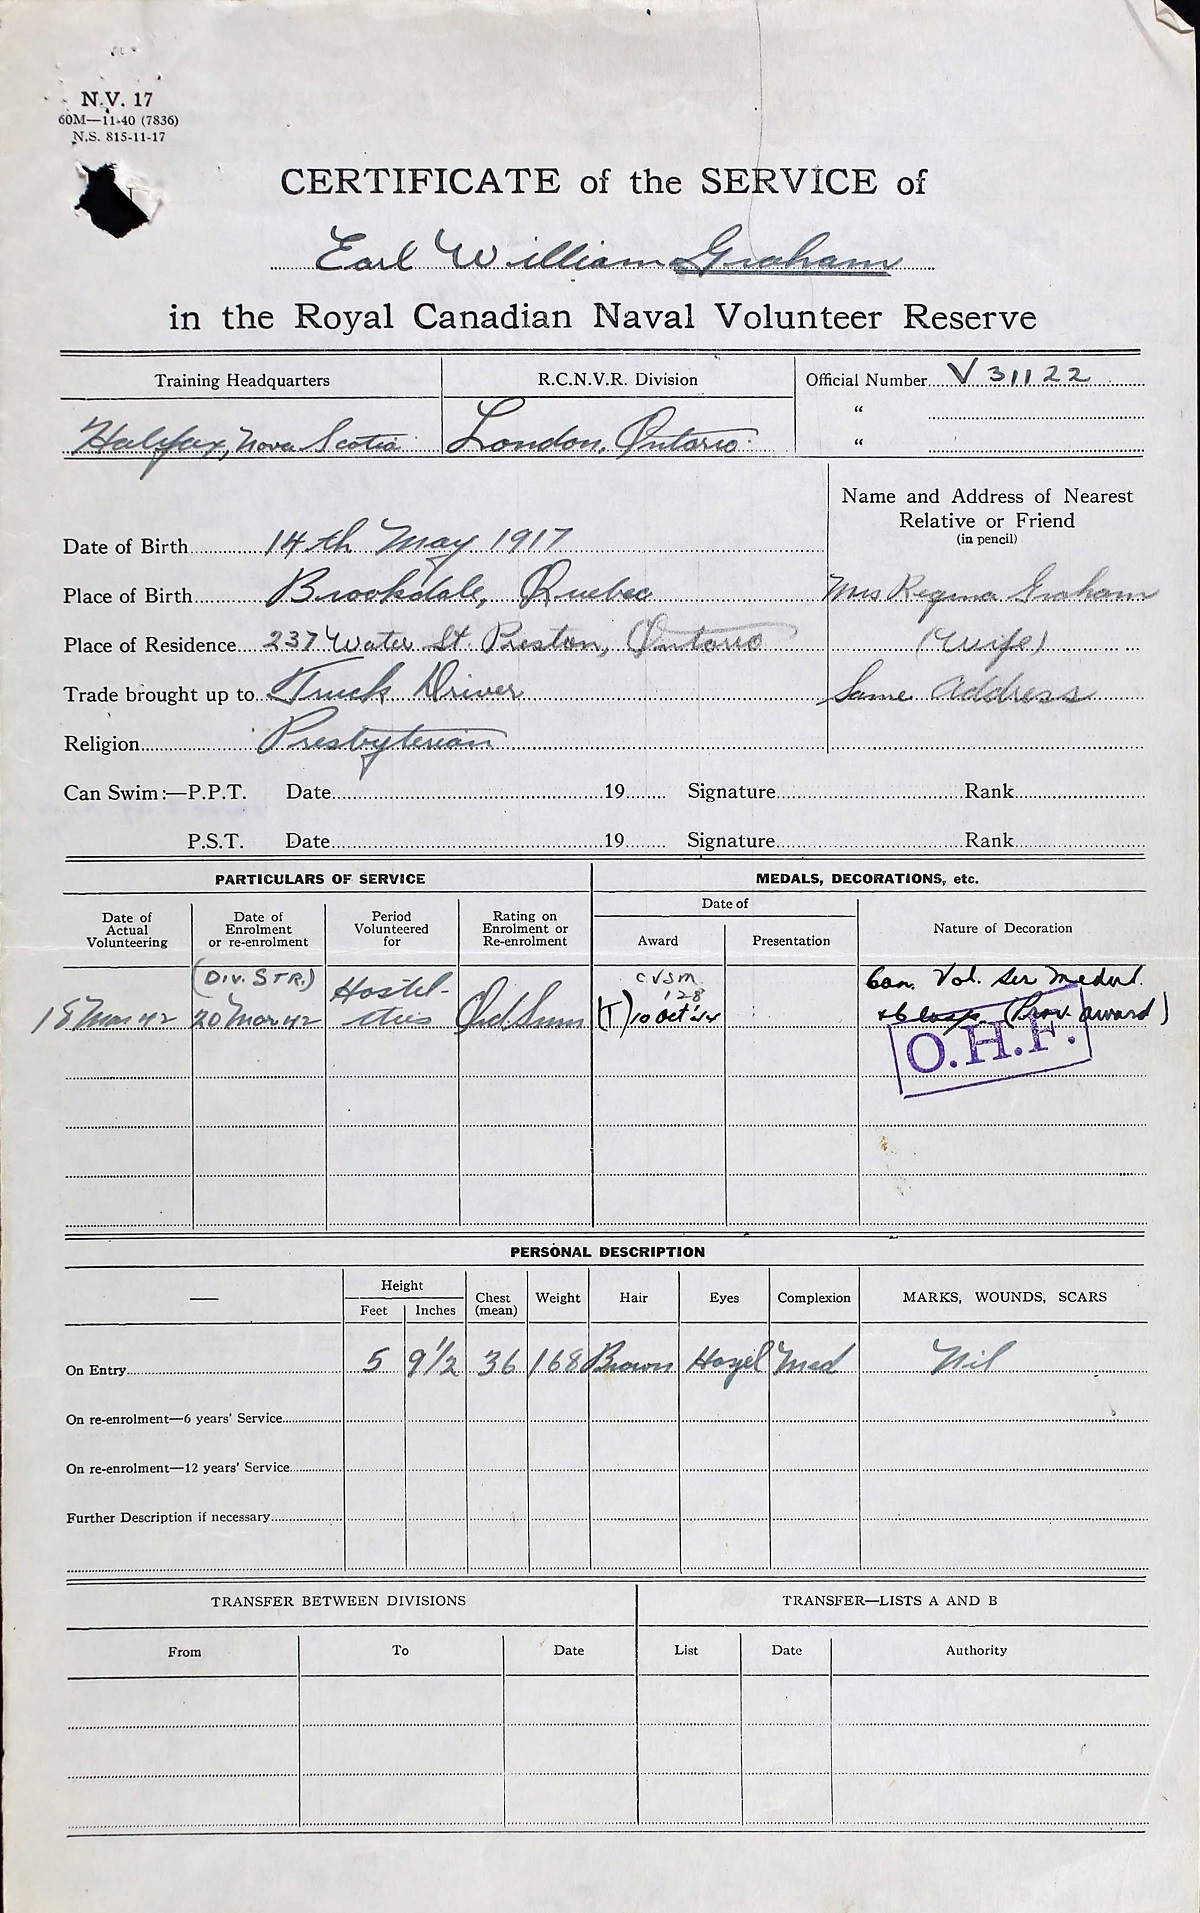 N.V. 17
60M—11-40 (7836)
N.S. 815-11-17
CERTIFICATE of the SERVICE of
Earl William Graham
in the Royal Canadian Naval Volunteer Reserve
Training Headquarters R.C.N.V.R. Division Official Number V31122
"
Halifax, Nova Scotia London, Ontario "
Name and Address of Nearest
Relative or Friend
(in pencil)
Date of Birth 14th May 1917
Place of Birth Brookdale, Quebec Mrs Regina Graham
Place of Residence 237 Water St. Preston, Ontario (Wife)
Trade brought up to Truck Driver Same Address
Religion Presbyterian
Can Swim:—P.P.T. Date 19 Signature Rank
P.S.T. Date 19 Signature Rank
PARTICULARS OF SERVICE MEDALS, DECORATIONS, etc.
Date of Actual Volunteering Date of Enrolment or re-enrolment Period Volunteered for Rating on Enrolment or Re-enrolment Date of Award Presentation Nature of Decoration
(DIV. STR.) Hostil- CVSM Can. Vol. Ser Medal.
128
18 Mar 42 20 Mar 42 ities Ord. Smn (T) 10 Oct '44 + Clasp (Prov. award)
O.H.F.
PERSONAL DESCRIPTION
— Height Feet Inches Chest (mean) Weight Hair Eyes Complexion MARKS, WOUNDS, SCARS
On Entry 5 9½ 36 168 Brown Hazel Med Nil
On re-enrolment—6 years' Service
On re-enrolment—12 years' Service
Further Description if necessary
TRANSFER BETWEEN DIVISIONS TRANSFER—LISTS A AND B
From To Date List Date Authority